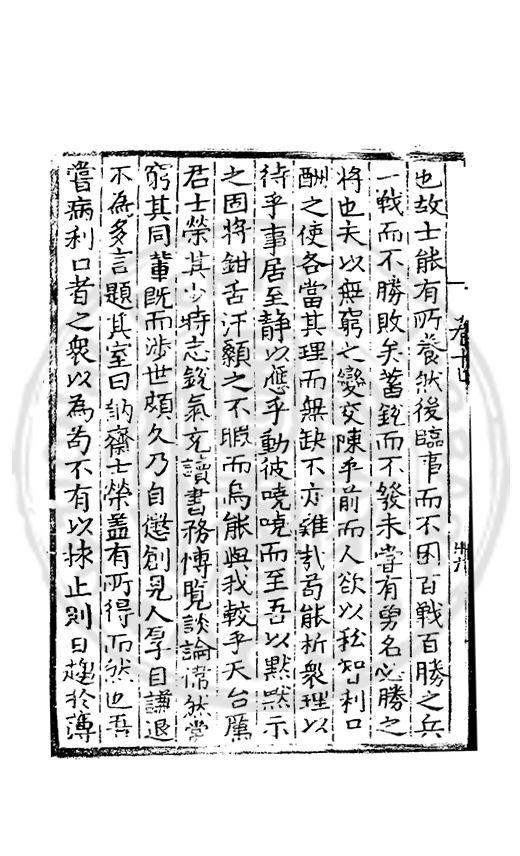 也故士能有所養然後臨事而不困百戰百勝之兵
一戰而不勝敗矣蓄銳而不發未嘗有勇名必勝之
將也夫以無窮之變交陳乎前而人欲以私知利口
酬之使各當其理而無缺不亦難哉苟能析衆理以
待乎事居至静以應乎動彼嘵嘵而至吾以黙黙示
之固將鉗舌汗顙之不暇而烏能與我較乎天台厲
君士榮其少時志銳氣充讀書務博覽談論常然嘗
窮其同軰旣而渉世頗久乃自懲創見人孚目謙退
不為多言題其室曰訥齋士榮盖有所得而然也吾
嘗病利口者之衆以為苟不有以捄止則日趨於薄
卷十四